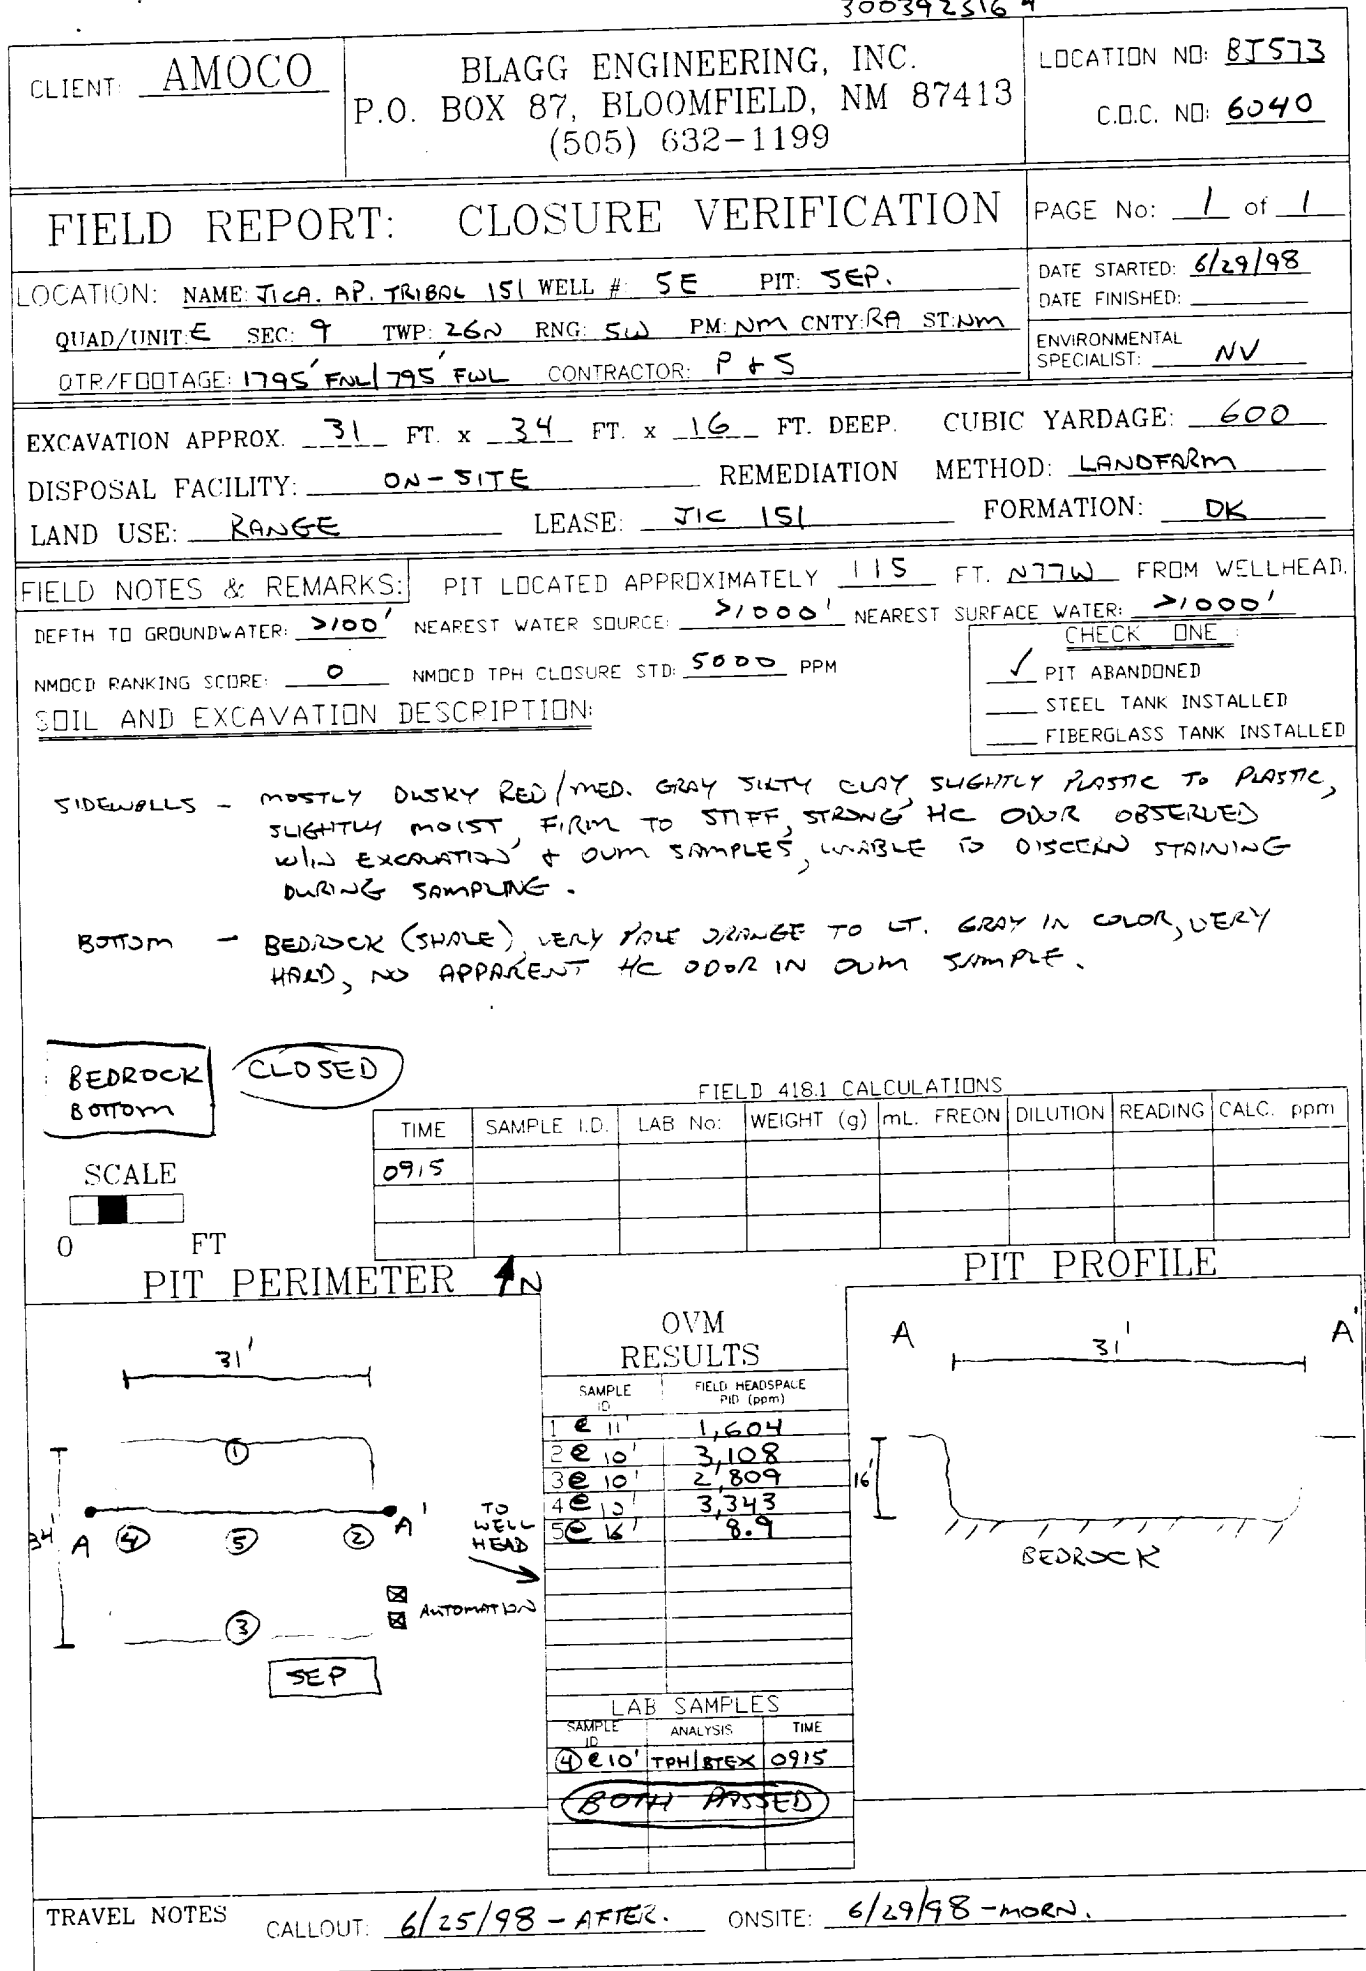 300392316 4
CLIENT: AMOCO
BLAGG ENGINEERING, INC.
P.O. BOX 87, BLOOMFIELD, NM 87413
(505) 632-1199
LOCATION NO: BJ573
C.O.C. NO: 6040
FIELD REPORT: CLOSURE VERIFICATION
PAGE No: 1 of 1
LOCATION: NAME: JICA. AP. TRIBAL 151 WELL #: 5E PIT: SEP.
QUAD/UNIT: E SEC: 9 TWP: 26N RNG: 5W PM: NM CNTY: RA ST: NM
QTR/FOOTAGE: 1795' FNL/795' FWL CONTRACTOR: P + S
DATE STARTED: 6/29/98
DATE FINISHED:
ENVIRONMENTAL
SPECIALIST: NV
EXCAVATION APPROX. 31 FT. x 34 FT. x 16 FT. DEEP. CUBIC YARDAGE: 600
DISPOSAL FACILITY: ON-SITE REMEDIATION METHOD: LANDFARM
LAND USE: RANGE LEASE: JIC 151 FORMATION: DK
FIELD NOTES & REMARKS: PIT LOCATED APPROXIMATELY 115 FT. N77W FROM WELLHEAD.
DEPTH TO GROUNDWATER: >100' NEAREST WATER SOURCE: >1000' NEAREST SURFACE WATER: >1000'
NMOCD RANKING SCORE: 0 NMOCD TPH CLOSURE STD: 5000 PPM
CHECK ONE :
✓ PIT ABANDONED
STEEL TANK INSTALLED
FIBERGLASS TANK INSTALLED
SOIL AND EXCAVATION DESCRIPTION:
SIDEWALLS - MOSTLY DUSKY RED/MED. GRAY SILTY CLAY SLIGHTLY PLASTIC TO PLASTIC,
SLIGHTLY MOIST, FIRM TO STIFF, STRONG HC ODOR OBSERVED
W/IN EXCAVATION & OVM SAMPLES, UNABLE TO DISCERN STAINING
DURING SAMPLING.
BOTTOM - BEDROCK (SHALE), VERY PALE ORANGE TO LT. GRAY IN COLOR, VERY
HARD, NO APPARENT HC ODOR IN OVM SAMPLE.
BEDROCK
BOTTOM
CLOSED
FIELD 418.1 CALCULATIONS
TIME SAMPLE I.D. LAB No: WEIGHT (g) mL. FREON DILUTION READING CALC. ppm
0915
SCALE
0 FT
PIT PERIMETER N
31'
34'
1
A 4 5 2 A'
3
TO
WELL
HEAD
AUTOMATION
SEP
OVM
RESULTS
SAMPLE ID FIELD HEADSPACE PID (ppm)
1 @ 11' 1,604
2 @ 10' 3,108
3 @ 10' 2,809
4 @ 10' 3,343
5 @ 16' 8.9
LAB SAMPLES
SAMPLE ID ANALYSIS TIME
4 @ 10' TPH/BTEX 0915
BOTH PASSED
PIT PROFILE
A A'
31'
16'
BEDROCK
TRAVEL NOTES CALLOUT: 6/25/98 - AFTER. ONSITE: 6/29/98 - MORN.